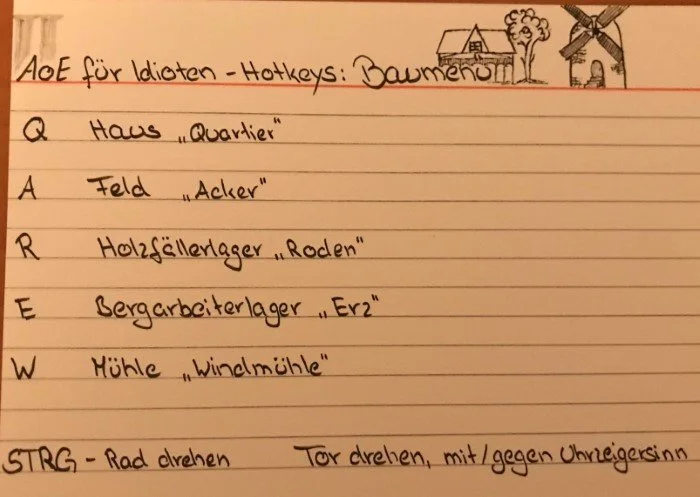 AoE für Idioten - Hotkeys: Baumenü
Q Haus „Quartier"
A Feld „Acker"
R Holzfällerlager „Roden"
E Bergarbeiterlager „Erz"
W Mühle „Windmühle"
STRG - Rad drehen Tor drehen, mit/gegen Uhrzeigersinn